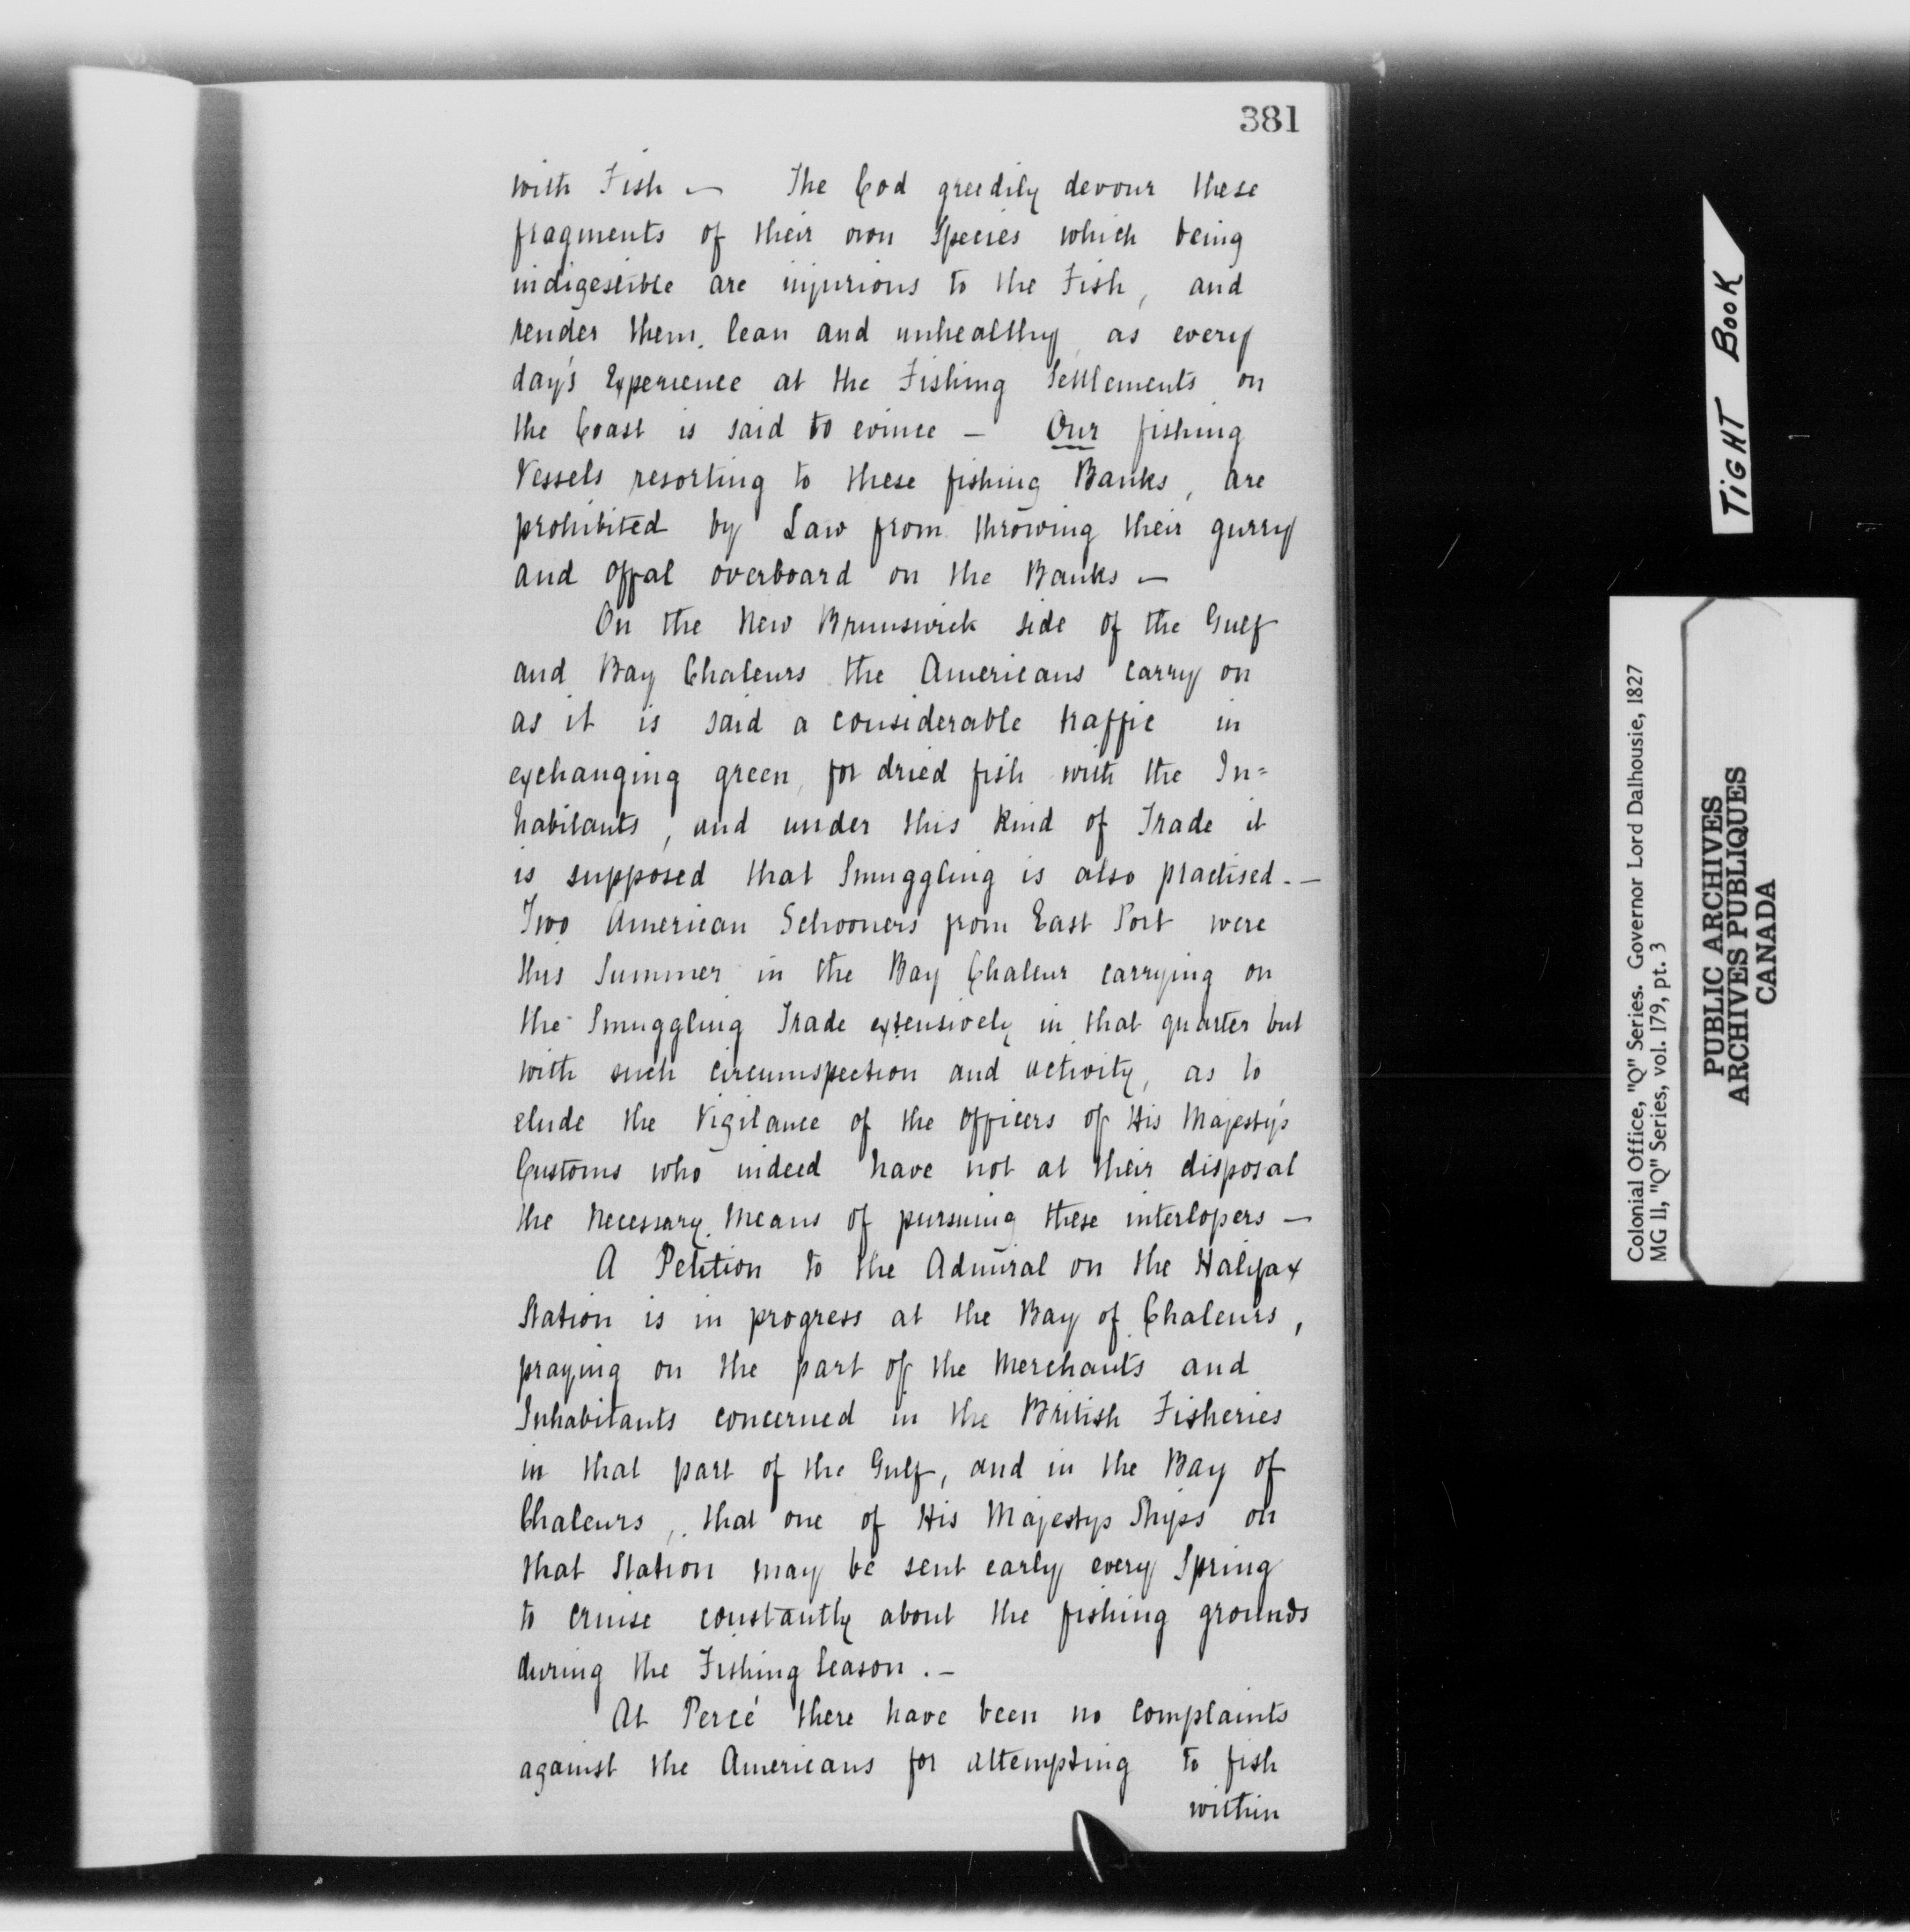 381
with Fish — The Cod greedily devour these
fragments of their own Species which being
indigestible are injurious to the Fish, and
render them lean and unhealthy as every
day's Experience at the Fishing Settlements on
the Coast is said to evince — Our fishing
Vessels resorting to these fishing Banks, are
prohibited by Law from throwing their gurry
and offal overboard on the Banks —
On the New Brunswick side of the Gulf
and Bay Chaleurs the Americans carry on
as it is said a considerable traffic in
exchanging green, for dried fish with the In=
habitants, and under this kind of Trade it
is supposed that Smuggling is also practised. —
Two American Schooners from East Port were
this Summer in the Bay Chaleur carrying on
the Smuggling Trade extensively in that quarter but
with such circumspection and activity, as to
elude the Vigilance of the Officers of His Majesty's
Customs who indeed have not at their disposal
the Necessary Means of pursuing these interlopers —
A Petition to the Admiral on the Halifax
Station is in progress at the Bay of Chaleurs,
praying on the part of the Merchants and
Inhabitants concerned in the British Fisheries
in that part of the Gulf, and in the Bay of
Chaleurs, that one of His Majestys Ships on
that Station may be sent early every Spring
to cruise constantly about the fishing grounds
during the Fishing Season. —
At Percé there have been no complaints
against the Americans for attempting to fish
within
TIGHT BOOK
Colonial Office, "Q" Series. Governor Lord Dalhousie, 1827
MG 11, "Q" Series, vol. 179, pt. 3
PUBLIC ARCHIVES
ARCHIVES PUBLIQUES
CANADA